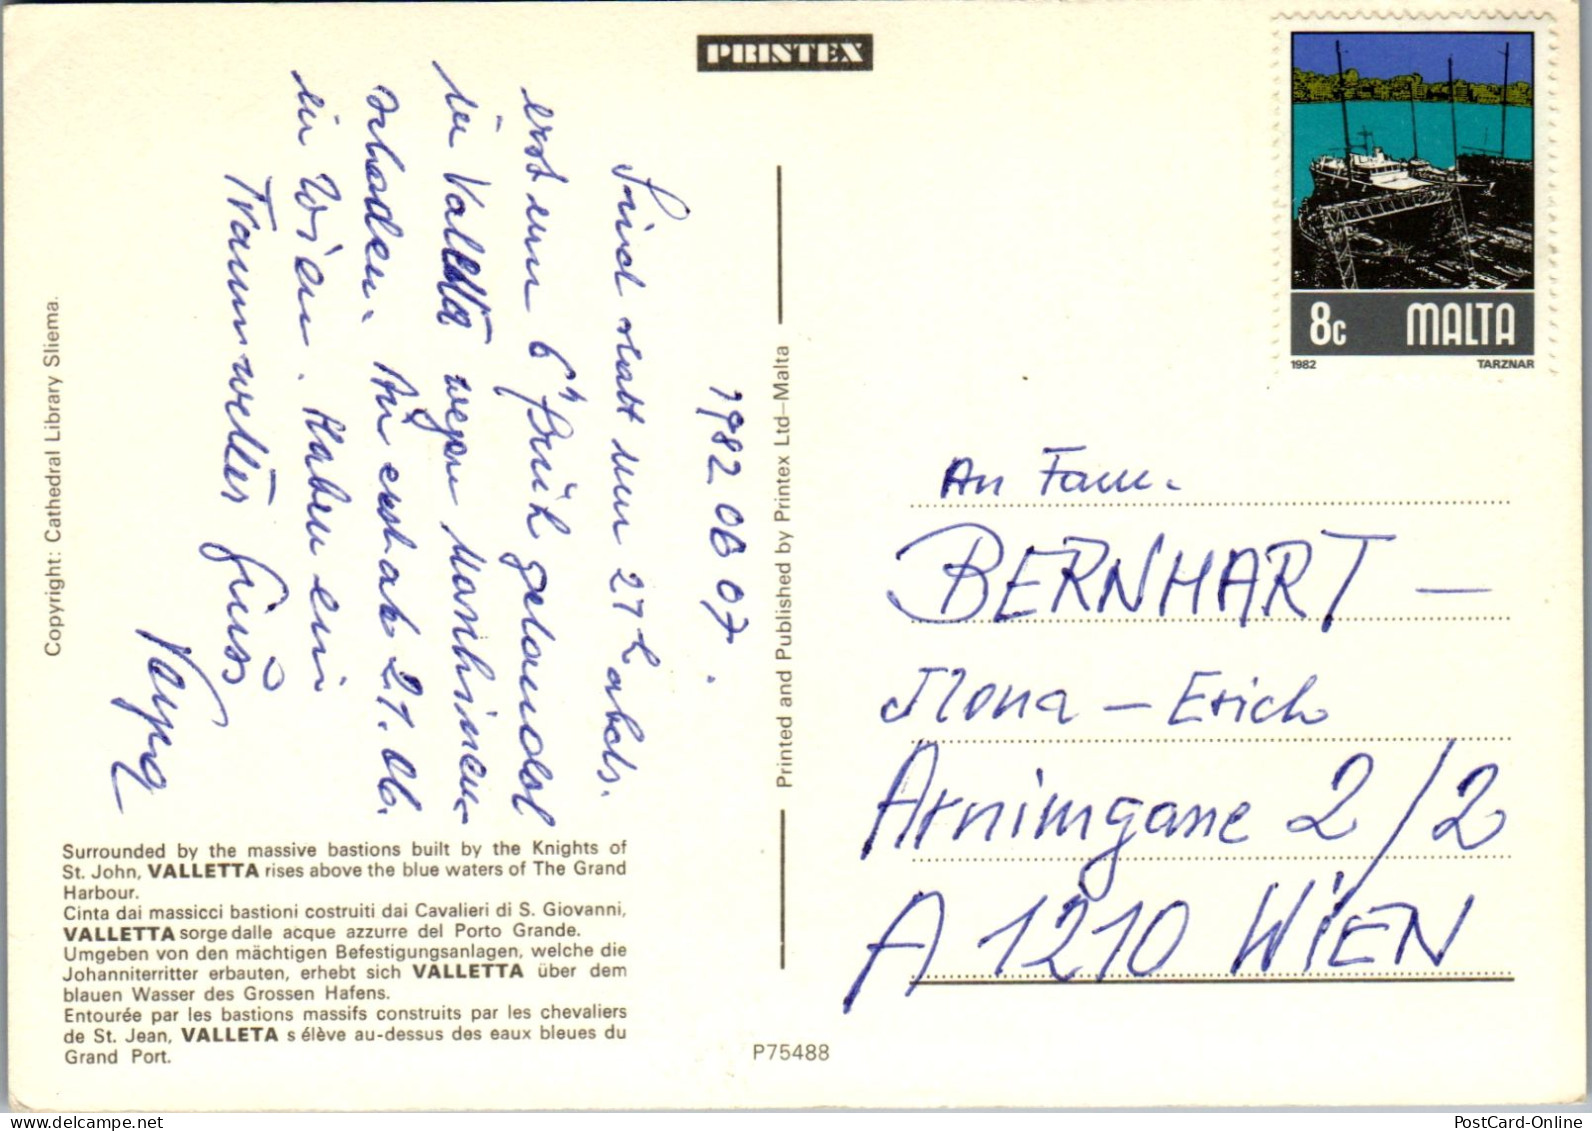 PRINTEX
1982 06 07.
Sind statt um 21h abds.
erst um 6h früh gelandet
in Valletta wegen Maschinen-
schaden. An erst ab 21.06.
in Wien. Haben ein
Traumwetter Gruß
8c MALTA
1982 TARZNAR
An Fam.
BERNHART —
Ilona – Erich
Arnimgasse 2/2
A 1210 WIEN
Copyright: Cathedral Library Sliema.
Printed and Published by Printex Ltd–Malta
Surrounded by the massive bastions built by the Knights of
St. John, VALLETTA rises above the blue waters of The Grand
Harbour.
Cinta dai massicci bastioni costruiti dai Cavalieri di S. Giovanni,
VALLETTA sorge dalle acque azzurre del Porto Grande.
Umgeben von den mächtigen Befestigungsanlagen, welche die
Johanniterritter erbauten, erhebt sich VALLETTA über dem
blauen Wasser des Grossen Hafens.
Entourée par les bastions massifs construits par les chevaliers
de St. Jean, VALLETA s élève au-dessus des eaux bleues du
Grand Port.
P75488
PostCard-Online